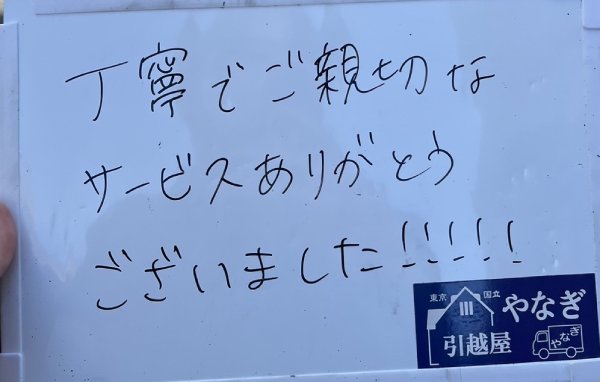 丁寧でご親切な
サービスありがとう
ございました!!!!!
東京 国立 やなぎ
引越屋 やなぎ